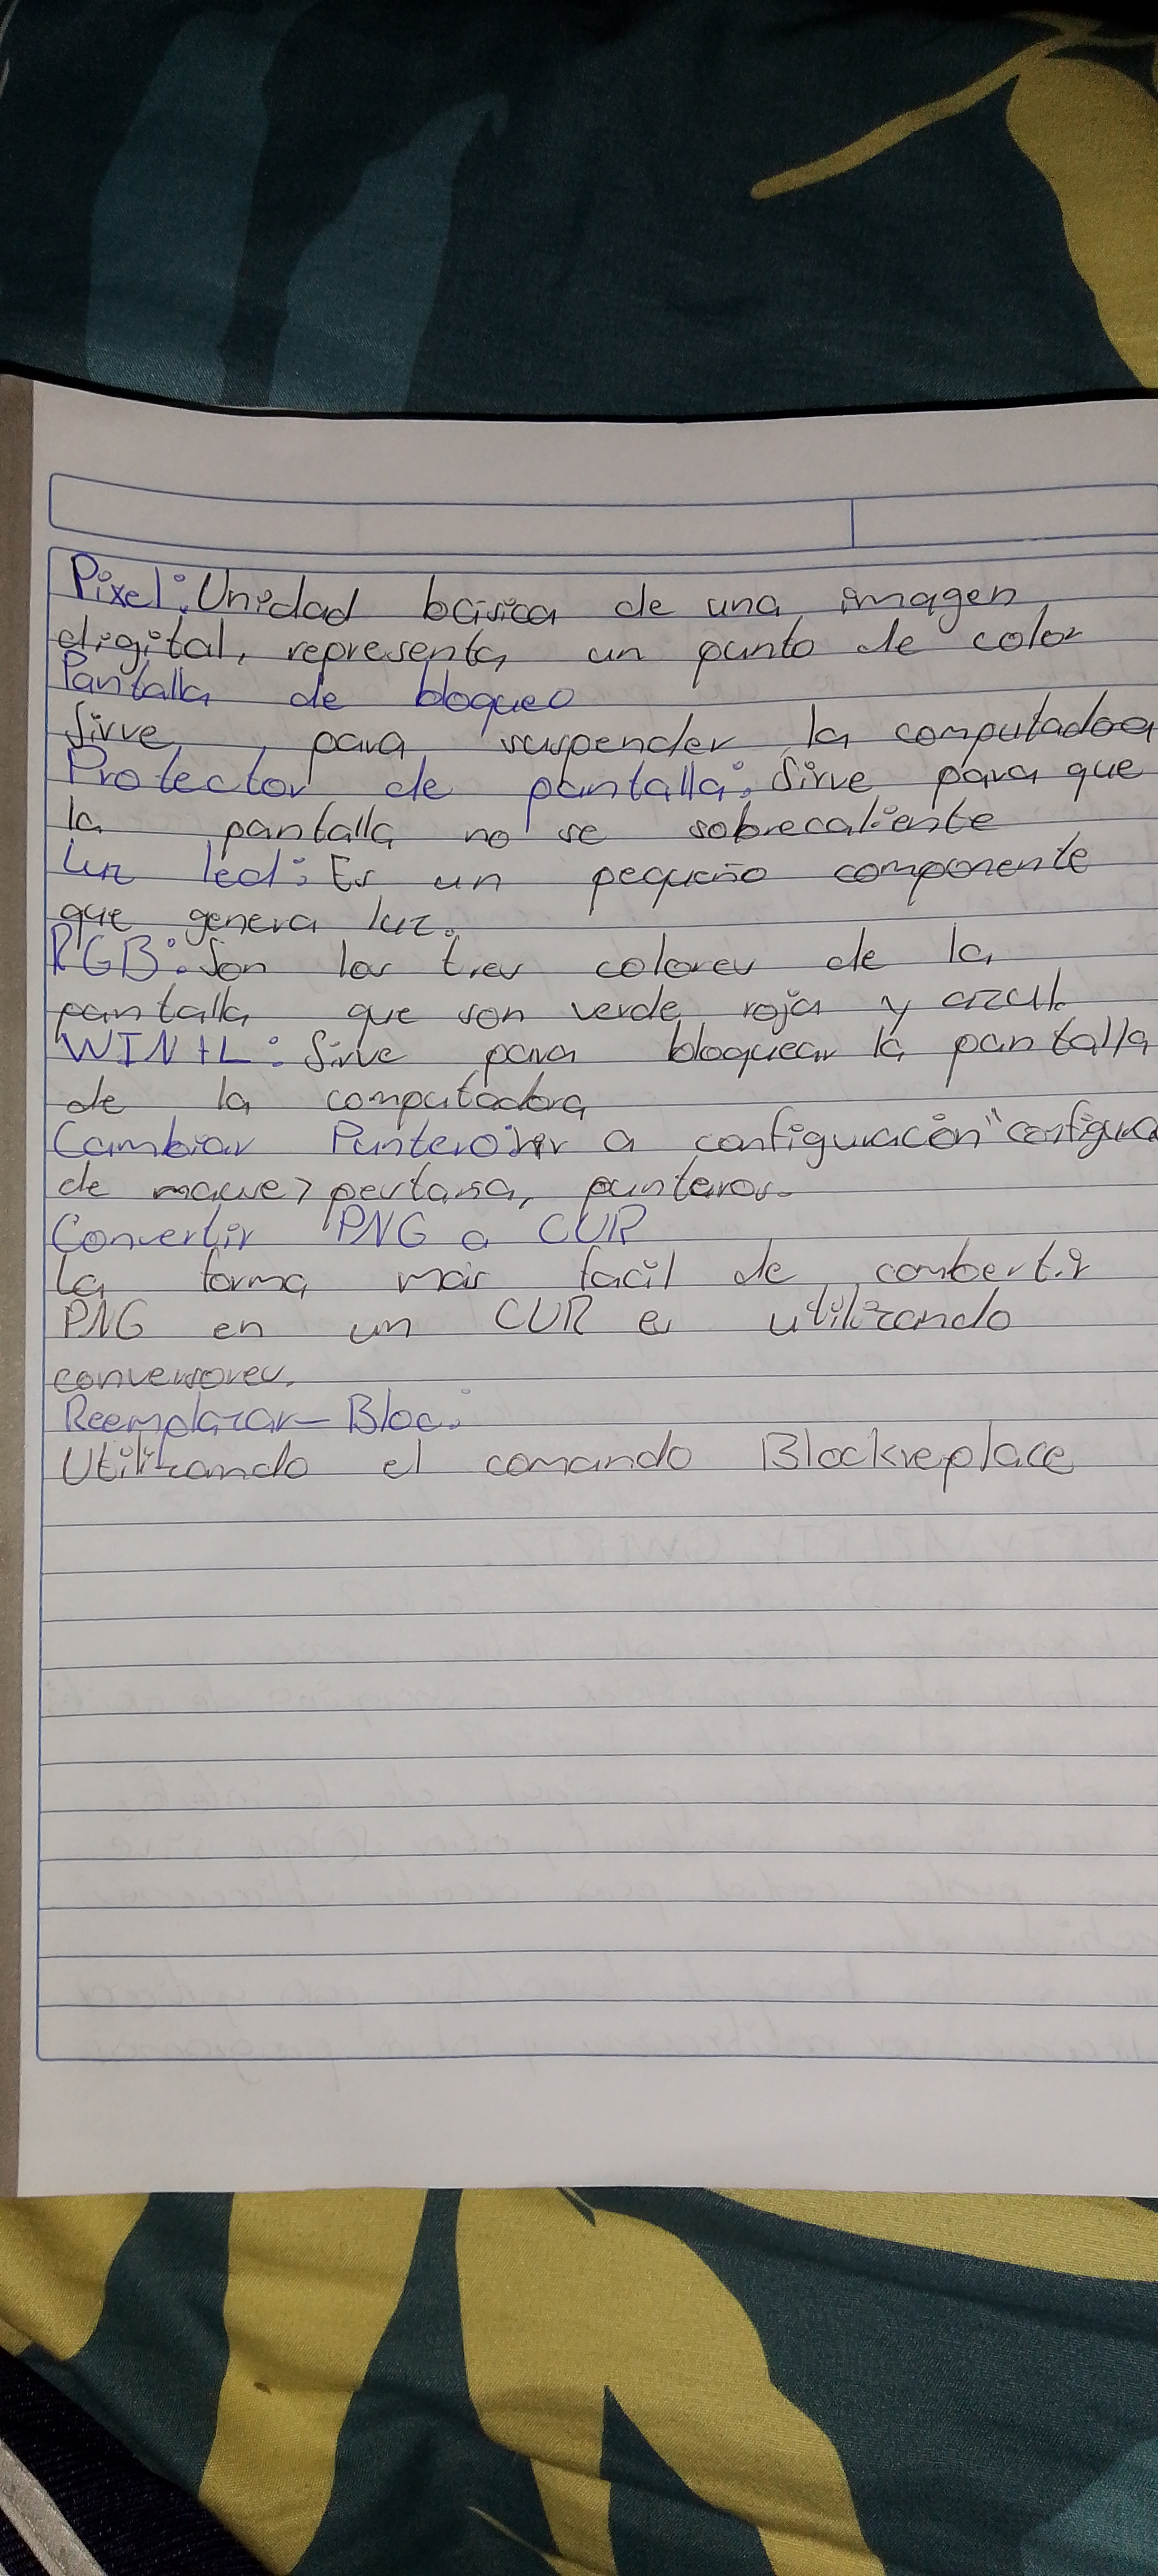 Pixel: Unidad básica de una imagen
digital, representa un punto de color
Pantalla de bloqueo
Sirve para suspender la computadora
Protector de pantalla: Sirve para que
la pantalla no se sobrecaliente
Luz led: Es un pequeño componente
que genera luz.
RGB: Son los tres colores de la
pantalla que son verde roja y azul.
WIN+L: Sirve para bloquear la pantalla
de la computadora
Cambiar Puntero: Ir a configuración "configura
de mause> pestaña, punteros.
Convertir PNG a CUR
La forma más facil de combertir
PNG en un CUR es utilizando
conversores.
Reemplazar - Bloc:
Utilizando el comando Blockreplace